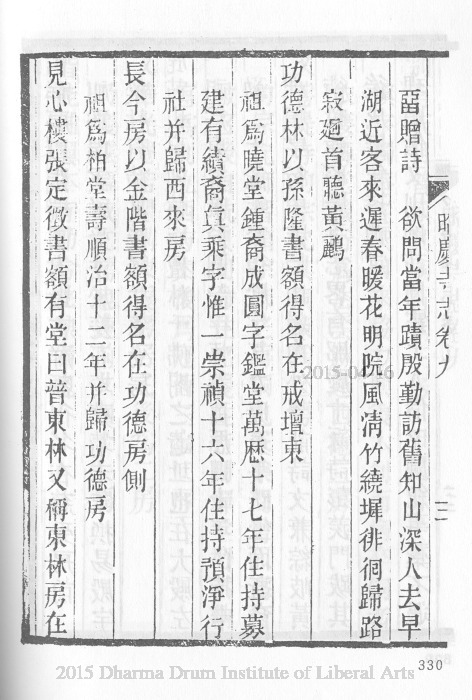 昭慶寺志卷九
三
畱贈詩　欲問當年蹟殷勤訪舊知山深人去早
湖近客來遲春暖花明院風淸竹繞墀徘徊歸路
寂廻首聽黃鸝
功德林以孫隆書額得名在戒壇東
祖爲曉堂鍾裔成圓字鑑堂萬厯十七年住持募
建有績裔眞乘字惟一崇禎十六年住持預淨行
社并歸西來房
長今房以金階書額得名在功德房側
祖爲柏堂壽順治十二年并歸功德房
見心樓張定徵書額有堂曰晉東林又稱東林房在
330
2015 Dharma Drum Institute of Liberal Arts